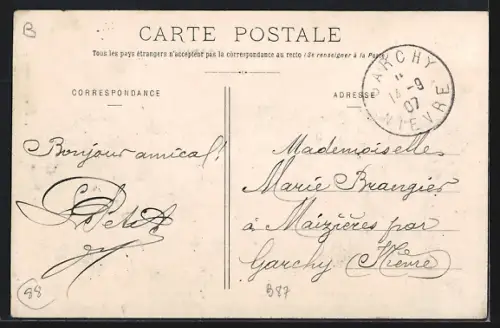 B
CARTE POSTALE
Tous les pays étrangers n'acceptent pas la correspondance au recto (Se renseigner à la Poste)
CORRESPONDANCE
ADRESSE
GARCHY
13 -9
07
NIEVRE
Bonjour amical!
Petit
Mademoiselle
Marie Brangier
à Maizières par
Garchy (Nièvre)
98
B87